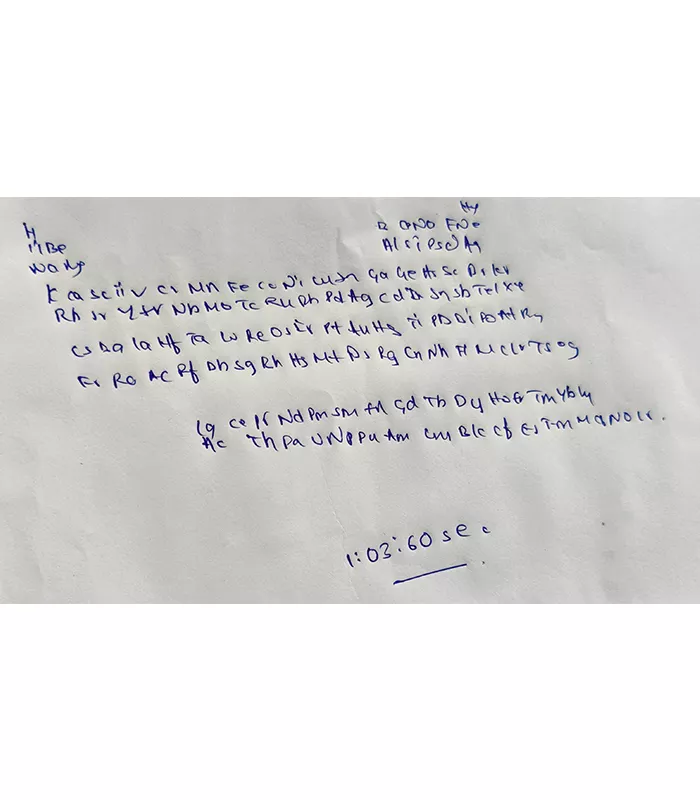 H
He
Li Be
B C N O F Ne
Na Mg
Al Si P S Cl Ar
K Ca Sc Ti V Cr Mn Fe Co Ni Cu Zn Ga Ge As Se Br Kr
Rb Sr Y Zr Nb Mo Tc Ru Rh Pd Ag Cd In Sn Sb Te I Xe
Cs Ba La Hf Ta W Re Os Ir Pt Au Hg Tl Pb Bi Po At Rn
Fr Ra Ac Rf Db Sg Bh Hs Mt Ds Rg Cn Nh Fl Mc Lv Ts Og
Ce Pr Nd Pm Sm Eu Gd Tb Dy Ho Er Tm Yb Lu
Th Pa U Np Pu Am Cm Bk Cf Es Fm Md No Lr.
1:03:60 sec